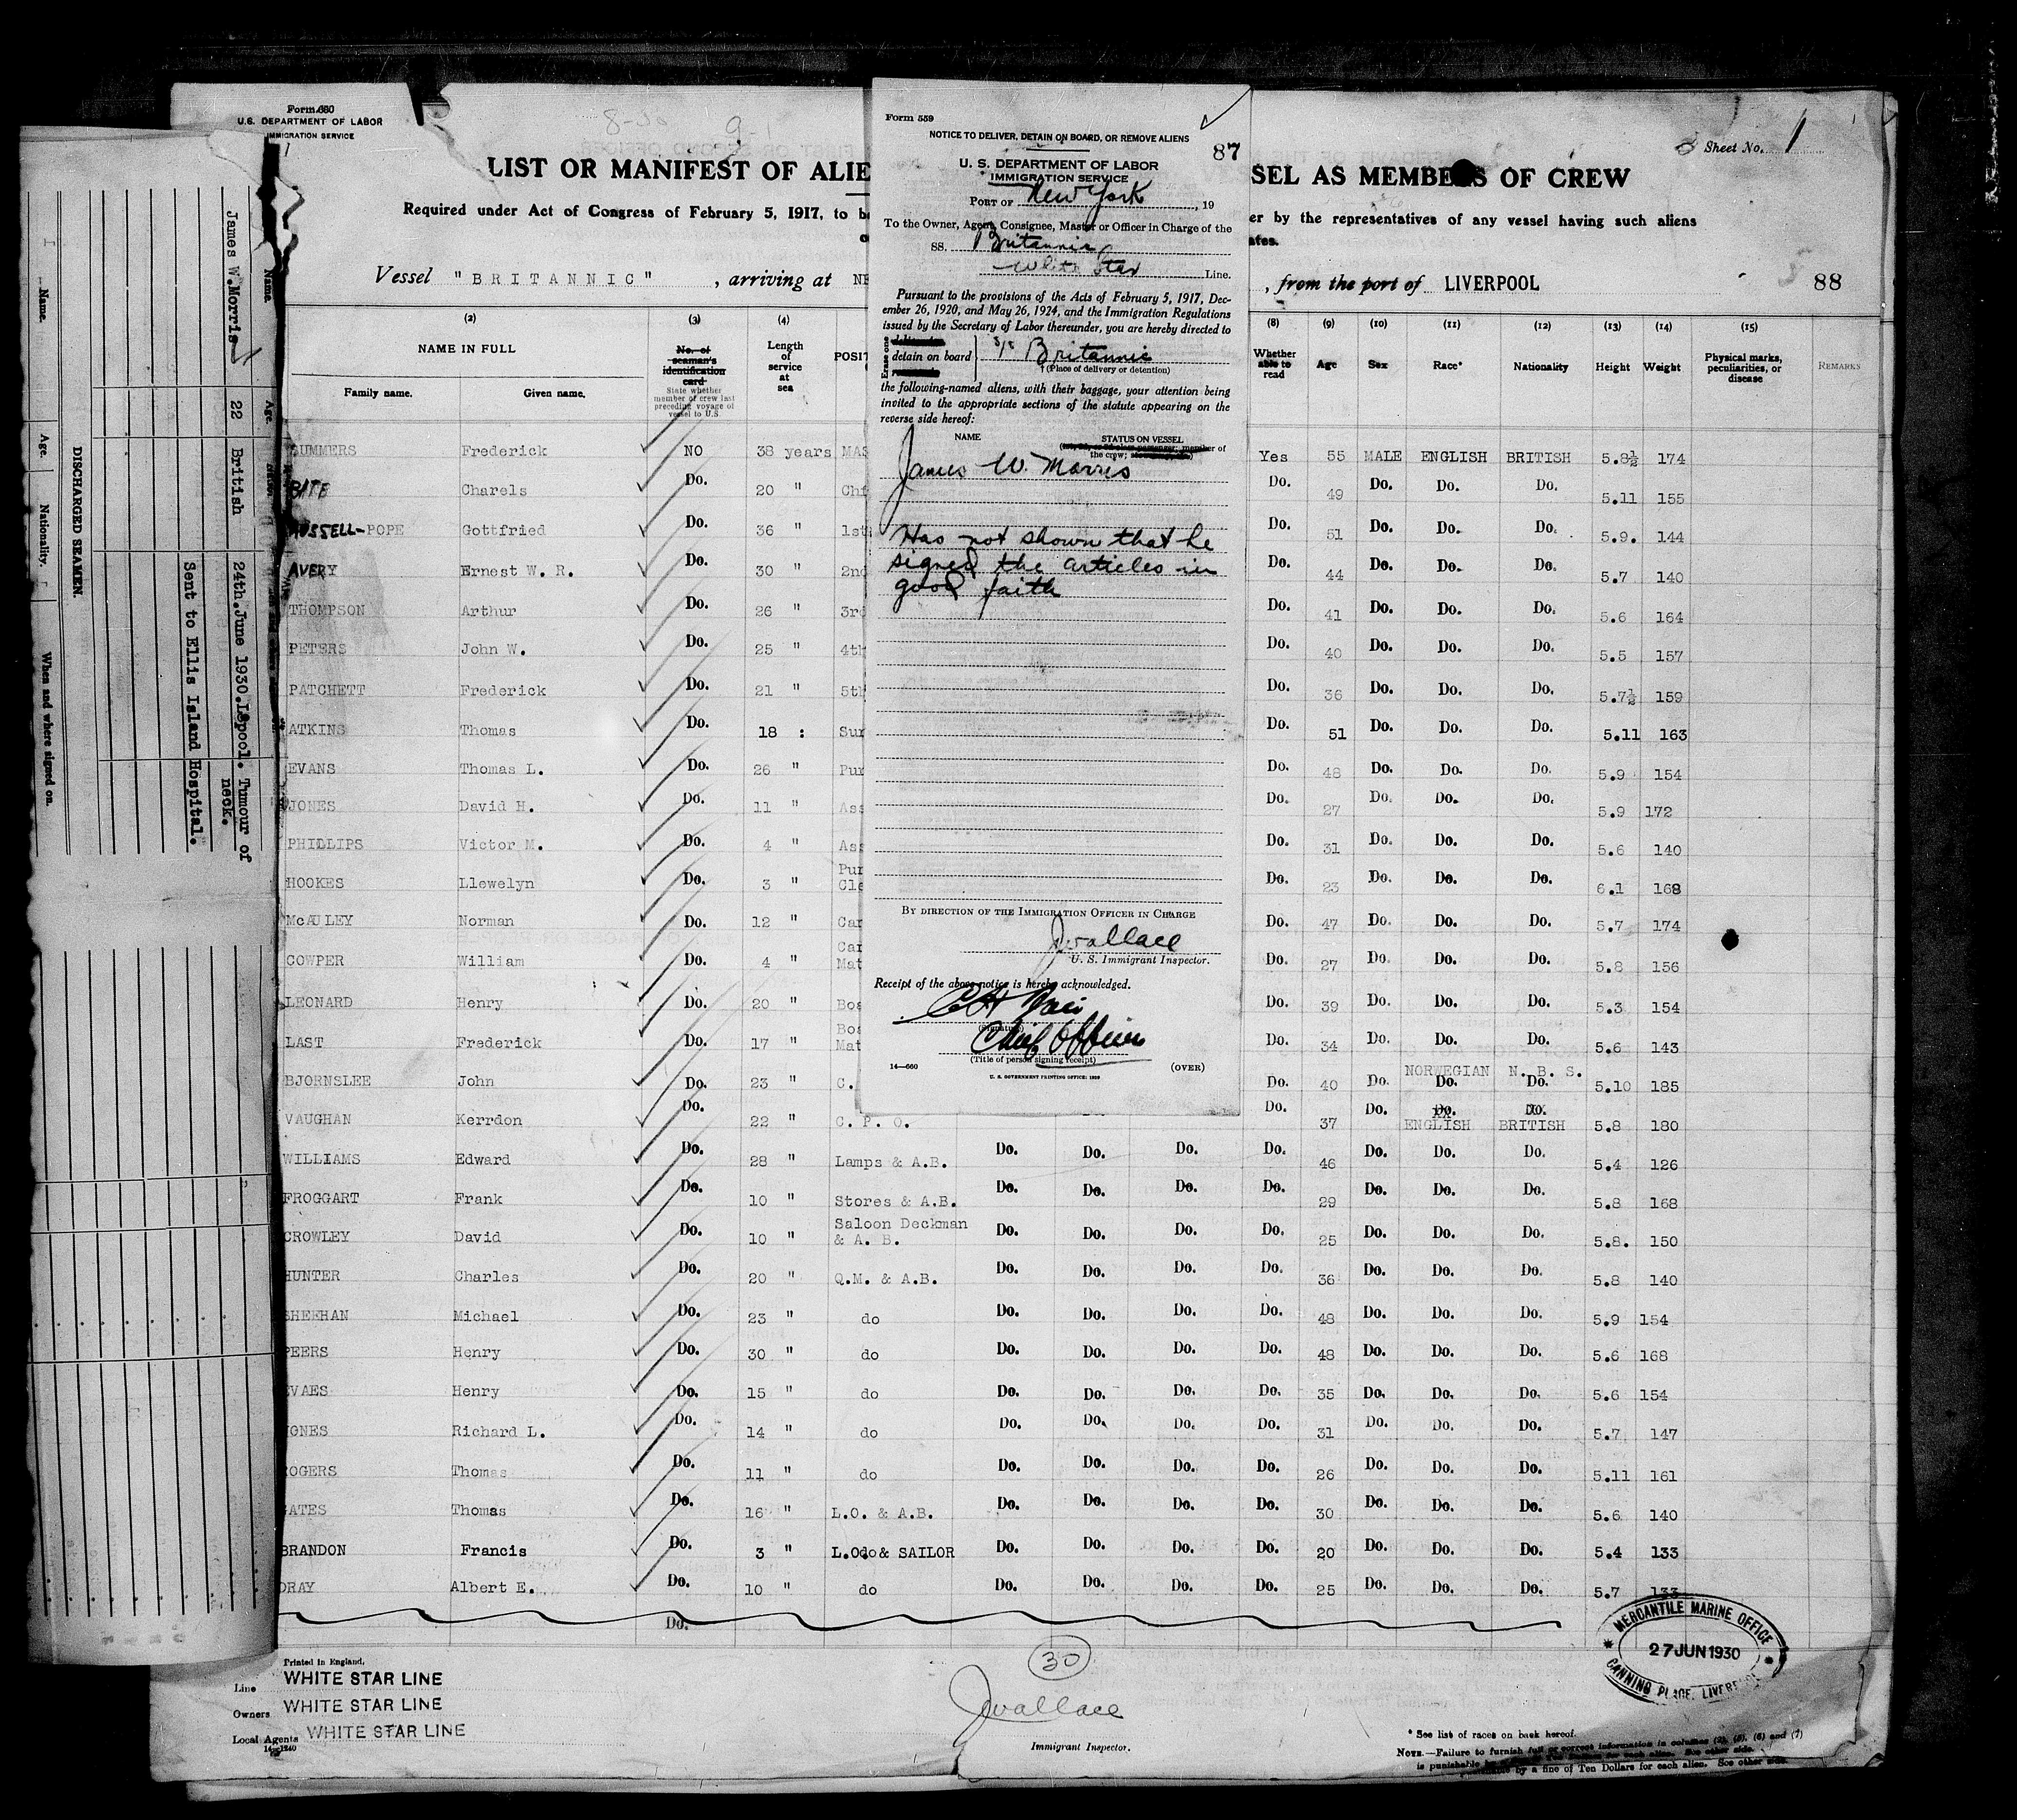 Form 680
U.S. DEPARTMENT OF LABOR
IMMIGRATION SERVICE
LIST OR MANIFEST OF ALIE
SSEL AS MEMBERS OF CREW
Sheet No. 1
Required under Act of Congress of February 5, 1917, to b
er by the representatives of any vessel having such aliens
ates.
Vessel "BRITANNIC", arriving at NE
, from the port of LIVERPOOL
88
Form 559
NOTICE TO DELIVER, DETAIN ON BOARD, OR REMOVE ALIENS
87
U. S. DEPARTMENT OF LABOR
IMMIGRATION SERVICE
PORT OF New York, 19
To the Owner, Agent, Consignee, Master or Officer in Charge of the
SS. Britannic
White Star Line.
Pursuant to the provisions of the Acts of February 5, 1917, Dec-
ember 26, 1920, and May 26, 1924, and the Immigration Regulations
issued by the Secretary of Labor thereunder, you are hereby directed to
Erase one
detain on board } S/S Britannic
(Place of delivery or detention)
the following-named aliens, with their baggage, your attention being
invited to the appropriate sections of the statute appearing on the
reverse side hereof:
NAME STATUS ON VESSEL
member of
the crew;
James W. Morris
Has not shown that he
signed the articles in
good faith
BY DIRECTION OF THE IMMIGRATION OFFICER IN CHARGE
J Wallace
U. S. Immigrant Inspector.
Receipt of the above notice is hereby acknowledged.
(Signature)
Chief Officer
(Title of person signing receipt)
14—660
U. S. GOVERNMENT PRINTING OFFICE: 1929
(OVER)
DISCHARGED SEAMEN.
Name. Age. Nationality. When and where signed on.
Name. Age.
James W. Morris 22 British 24th.June 1930.L'pool. Tumour of
neck.
Sent to Ellis Island Hospital.
(2) (3) (4) (8) (9) (10) (11) (12) (13) (14) (15)
NAME IN FULL
Family name. Given name.
No. of seaman's identification card
State whether member of crew last preceding voyage of vessel to U.S.
Length of service at sea
POSIT
Whether able to read
Age Sex Race* Nationality Height Weight
Physical marks, peculiarities, or disease
REMARKS
SUMMERS Frederick NO 38 years MAS Yes 55 MALE ENGLISH BRITISH 5.8½ 174
BATE Charels Do. 20 " Chi Do. 49 Do. Do. Do. 5.11 155
RUSSELL-POPE Gottfried Do. 36 " 1st Do. 51 Do. Do. Do. 5.9. 144
AVERY Ernest W. R. Do. 30 " 2nd Do. 44 Do. Do. Do. 5.7 140
THOMPSON Arthur Do. 26 " 3rd Do. 41 Do. Do. Do. 5.6 164
PETERS John W. Do. 25 " 4th Do. 40 Do. Do. Do. 5.5 157
PATCHETT Frederick Do. 21 " 5th Do. 36 Do. Do. Do. 5.7½ 159
ATKINS Thomas Do. 18 : Sur Do. 51 Do. Do. Do. 5.11 163
EVANS Thomas L. Do. 26 " Pur Do. 48 Do. Do. Do. 5.9 154
JONES David H. Do. 11 " Ass Do. 27 Do. Do. Do. 5.9 172
PHILLIPS Victor M. Do. 4 " Ass Do. 31 Do. Do. Do. 5.6 140
HOOKES Llewelyn Do. 3 " Pur Cle Do. 23 Do. Do. Do. 6.1 168
McAULEY Norman Do. 12 " Car Do. 47 Do. Do. Do. 5.7 174
COWPER William Do. 4 " Car Mat Do. 27 Do. Do. Do. 5.8 156
LEONARD Henry Do. 20 " Bos Do. 39 Do. Do. Do. 5.3 154
LAST Frederick Do. 17 " Bos Mat Do. 34 Do. Do. Do. 5.6 143
BJORNSLEE John Do. 23 " C. Do. 40 Do. NORWEGIAN Do. N. B. S. Do. 5.10 185
VAUGHAN Kerrdon Do. 22 " C. P. O. Do. 37 Do. Do. ENGLISH Do. BRITISH 5.8 180
WILLIAMS Edward Do. 28 " Lamps & A.B. Do. Do. Do. Do. 46 Do. Do. Do. 5.4 126
FROGGART Frank Do. 10 " Stores & A.B. Do. Do. Do. Do. 29 Do. Do. Do. 5.8 168
CROWLEY David Do. 10 " Saloon Deckman & A. B. Do. Do. Do. Do. 25 Do. Do. Do. 5.8. 150
HUNTER Charles Do. 20 " Q.M. & A.B. Do. Do. Do. Do. 36 Do. Do. Do. 5.8 140
SHEEHAN Michael Do. 23 " do Do. Do. Do. Do. 48 Do. Do. Do. 5.9 154
PEERS Henry Do. 30 " do Do. Do. Do. Do. 48 Do. Do. Do. 5.6 168
EVAES Henry Do. 15 " do Do. Do. Do. Do. 35 Do. Do. Do. 5.6 154
JONES Richard L. Do. 14 " do Do. Do. Do. Do. 31 Do. Do. Do. 5.7 147
ROGERS Thomas Do. 11 " do Do. Do. Do. Do. 26 Do. Do. Do. 5.11 161
GATES Thomas Do. 16 " L.O. & A.B. Do. Do. Do. Do. 30 Do. Do. Do. 5.6 140
BRANDON Francis Do. 3 " L.Odo& SAILOR Do. Do. Do. Do. 20 Do. Do. Do. 5.4 133
DRAY Albert E. Do. 10 " do Do. Do. Do. Do. 25 Do. Do. Do. 5.7 133
Do.
30
Printed in England.
Line WHITE STAR LINE
Owners WHITE STAR LINE
Local Agents WHITE STAR LINE
14—1240
J Wallace
Immigrant Inspector.
MERCANTILE MARINE OFFICE
27 JUN 1930
CANNING PLACE, LIVERPOOL
* See list of races on back hereof.
NOTE.—Failure to furnish full or correct information in columns (2), (5), (6) and (7)
is punishable by a fine of Ten Dollars for each alien. See other side.